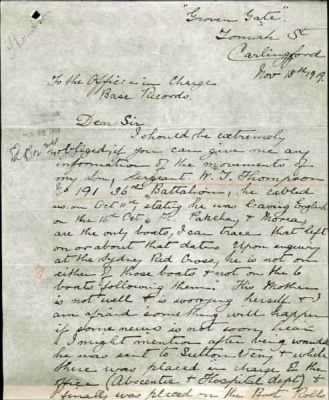 "Groven Gate".
Tomah St
Carlingford
Nov 18th 1919.
To the Officer in Charge
Base Records.
Dear Sir
I should be extremely
obliged if you can give me any
information of the movements of
my Son, Sergeant W. J. Thompson
No 191 36th Battalion, he cabled
us on Oct 11th stating he was leaving England
on the 15th Oct, & Moriea,
are the only boats, I can trace that left
on or about that date. Upon enquiry
at the Sydney Red Cross, he is not on
either of those boats & not on the 6
boats following them. His Mother
is not well & is worrying herself & I
am afraid something will happen
if some news is not soon,
I might mention after being wounded
he was sent to Sutton Veny & while
there was placed in charge of the
office (Absentee & Hospital dept) &
finally was placed on the Boat Rolls